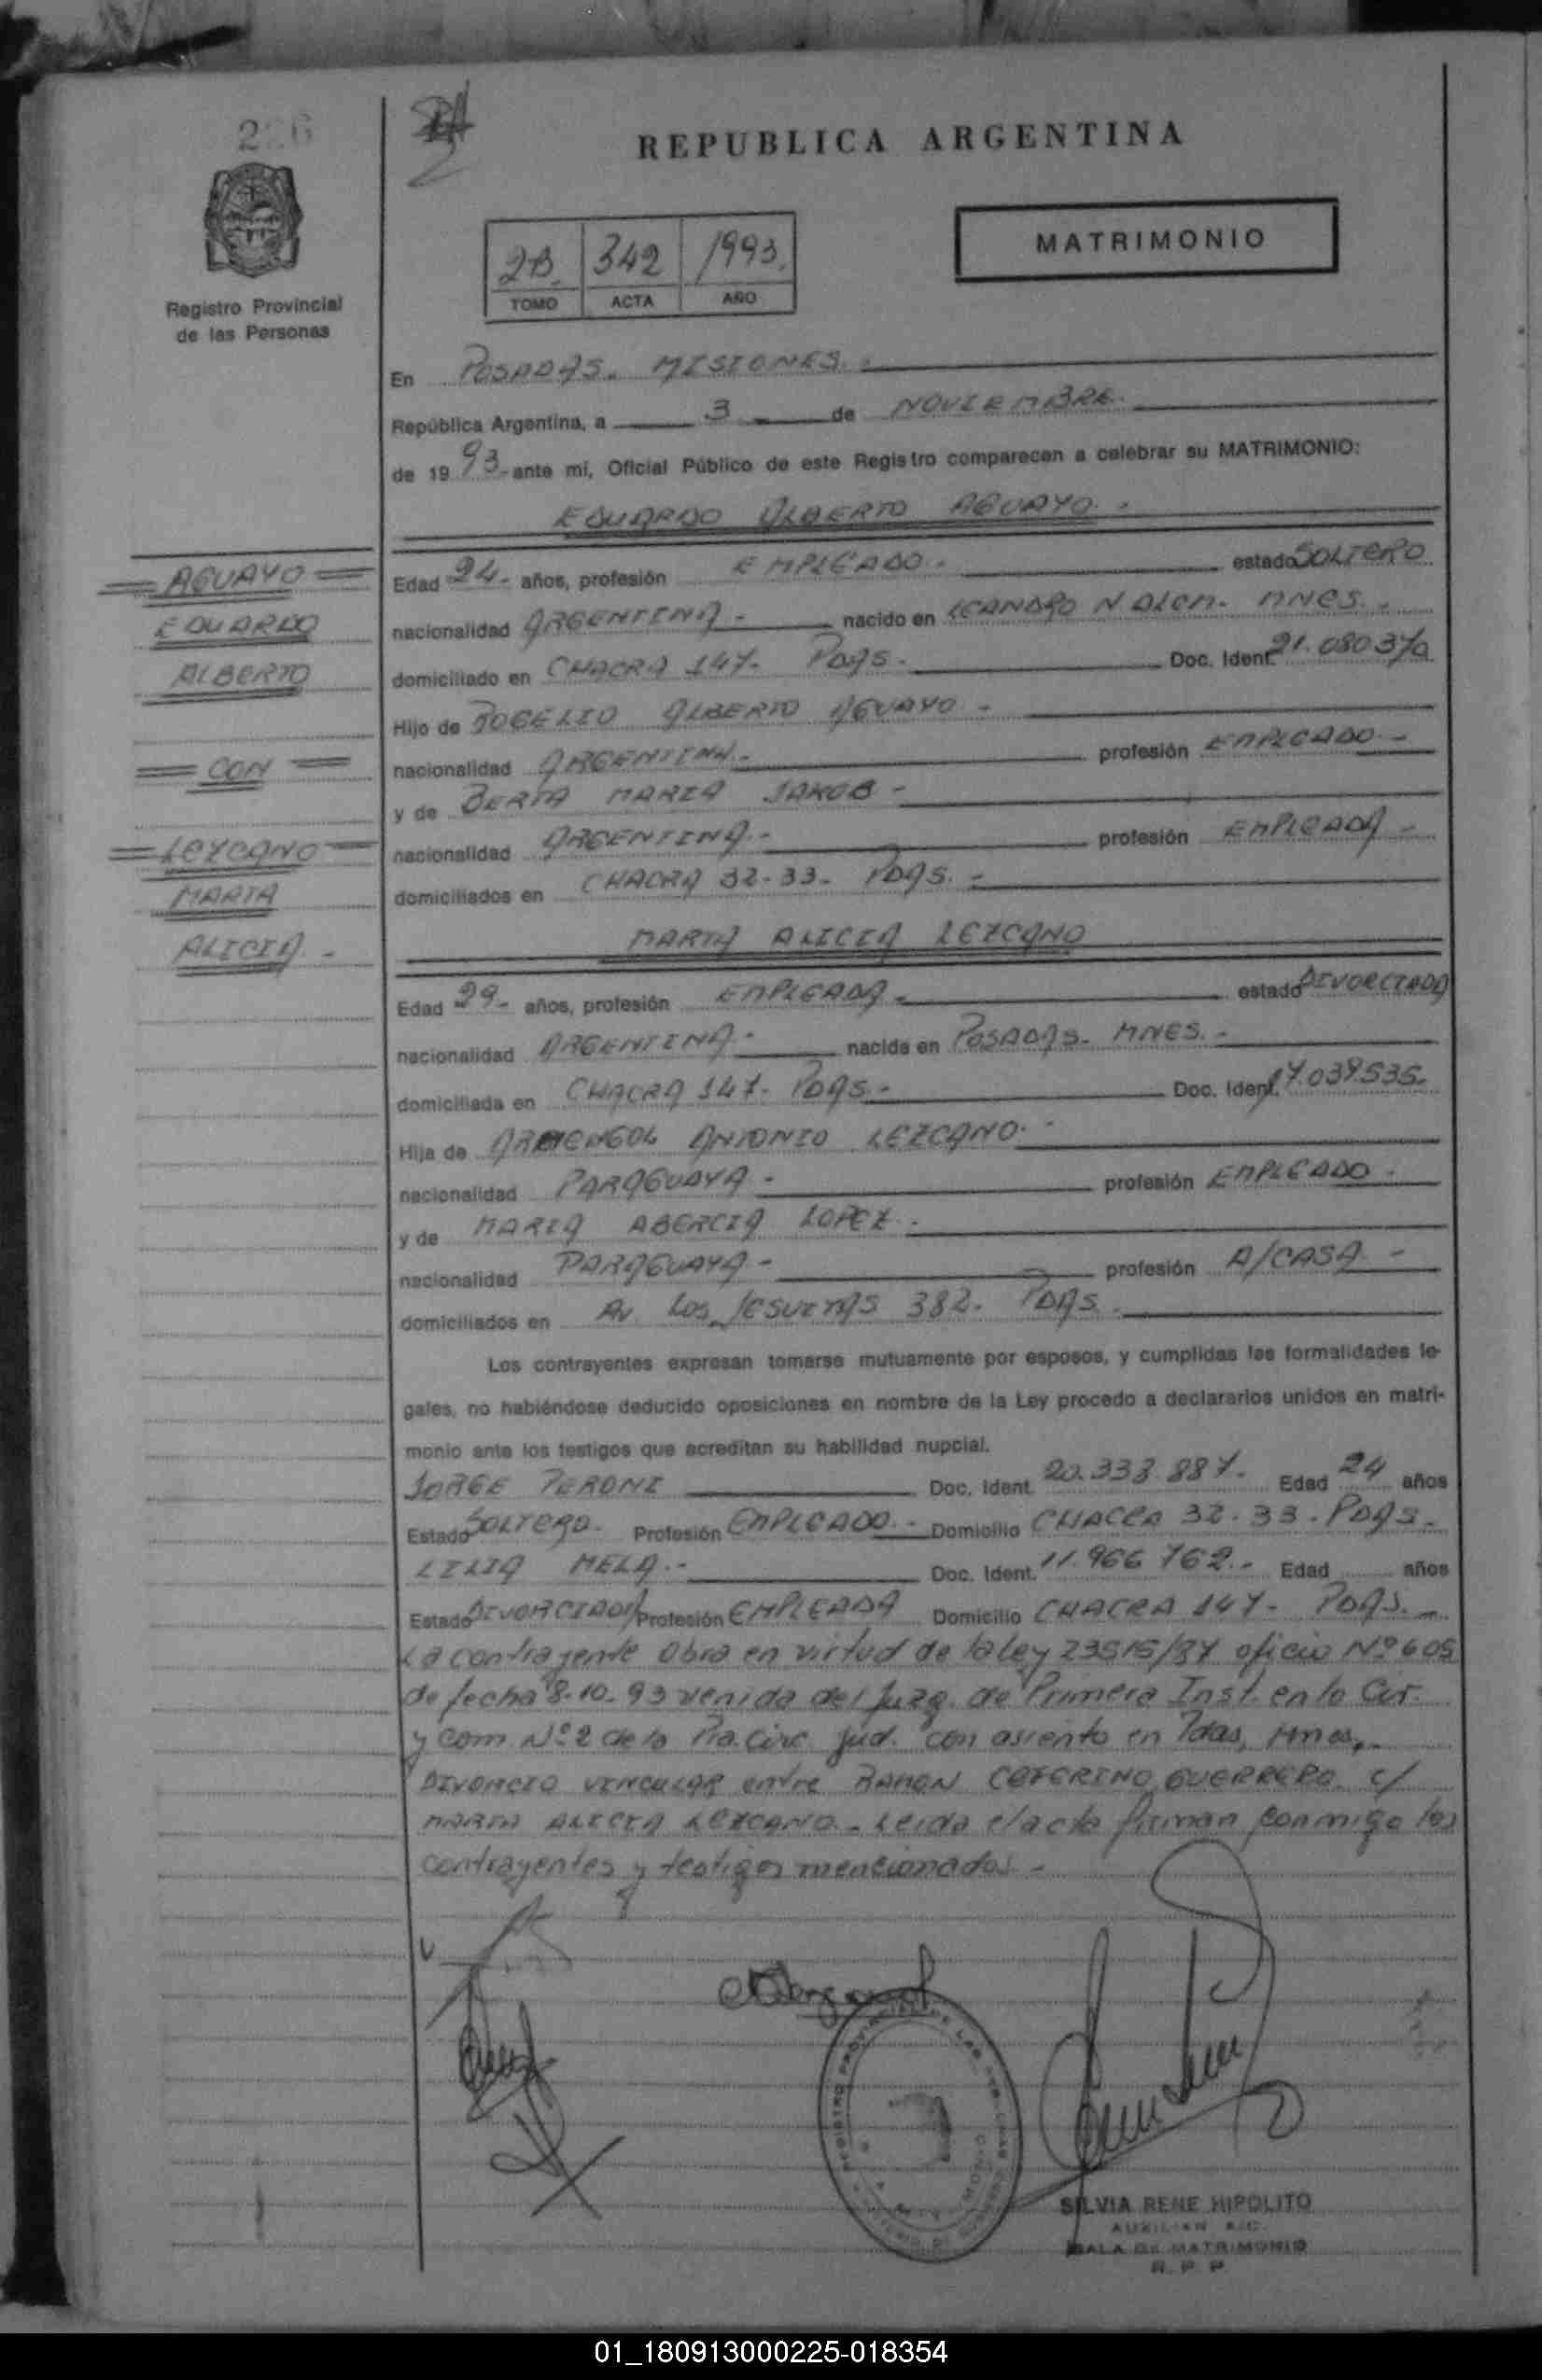 226
REPUBLICA ARGENTINA
MATRIMONIO
2B. 342 1993.
TOMO ACTA AÑO
Registro Provincial
de las Personas
En POSADAS. MISIONES.
República Argentina, a 3 de NOVIEMBRE.
de 19 93 ante mí, Oficial Público de este Registro comparecen a celebrar su MATRIMONIO:
EDUARDO ALBERTO AGUAYO. -
AGUAYO
EDUARDO
ALBERTO
CON
LEZCANO
MARTA
ALICIA. -
Edad 24- años, profesión EMPLEADO. - estado SOLTERO
nacionalidad ARGENTINA - nacido en LEANDRO N ALEM. MNES. -
domiciliado en CHACRA 147- PDAS. - Doc. Ident. 21.080370
Hijo de ROGELIO ALBERTO AGUAYO -
nacionalidad ARGENTINA.- profesión EMPLEADO -
y de BERTA MARIA JAKOB -
nacionalidad ARGENTINA.- profesión EMPLEADA -
domiciliados en CHACRA 32-33- PDAS. -
MARTA ALICIA LEZCANO
Edad 29- años, profesión EMPLEADA - estado DIVORCIADA
nacionalidad ARGENTINA - nacida en POSADAS- MNES. -
domiciliada en CHACRA 147- PDAS - Doc. Ident. 17.039.535-
Hija de ARMENGOL ANTONIO LEZCANO. -
nacionalidad PARAGUAYA - profesión EMPLEADO -
y de MARIA ABERCIA LOPEZ -
nacionalidad PARAGUAYA - profesión A/CASA -
domiciliados en Av. Los JESUITAS 382- PDAS.
Los contrayentes expresan tomarse mutuamente por esposos, y cumplidas las formalidades le-
gales, no habiéndose deducido oposiciones en nombre de la Ley procedo a declararlos unidos en matri-
monio ante los testigos que acreditan su habilidad nupcial.
JORGE PERONI Doc. Ident. 20.338.887- Edad 24 años
Estado SOLTERO- Profesión EMPLEADO. - Domicilio CHACRA 32-33- PDAS-
LILIA MELA. - Doc. Ident. 11.966 762. - Edad años
Estado DIVORCIADA Profesión EMPLEADA Domicilio CHACRA 147- PDAS. -
La contrayente obra en virtud de la ley 23515/87 oficio Nº 605
de fecha 8-10-93 venida del Juzg. de Primera Inst. en lo Civ.
y Com. Nº 2 de la Pra. Circ. Jud. con asiento en Pdas, Mnes,
DIVORCIO VINCULAR entre RAMON CEFERINO GUERRERO c/
MARTA ALICIA LEZCANO - Leida el acta firman conmigo los
contrayentes y testigos mencionados -
SILVIA RENE HIPOLITO
AUXILIAR A/C
SALA DE MATRIMONIO
R. P P
01_180913000225-018354